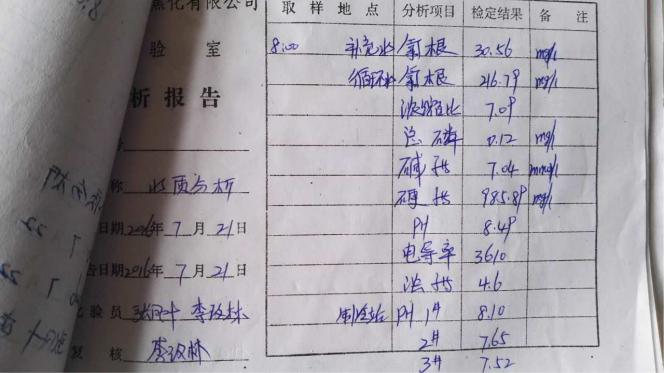 焦化有限公司
验 室
析报告
称 水质分析
日期2016年7月21日
告日期2016年7月21日
化验员
复核
取样地点 分析项目 检定结果 备注
8:00 补充水 氯根 30.56 mg/l
循环水 氯根 216.79 mg/l
浓缩比 7.09
总磷 0.12 mg/l
碱度 7.04 mmol/l
硬度 985.89 mg/l
PH 8.49
电导率 3610
浊度 4.6
制冷站 PH 1# 8.10
2# 7.65
3# 7.52